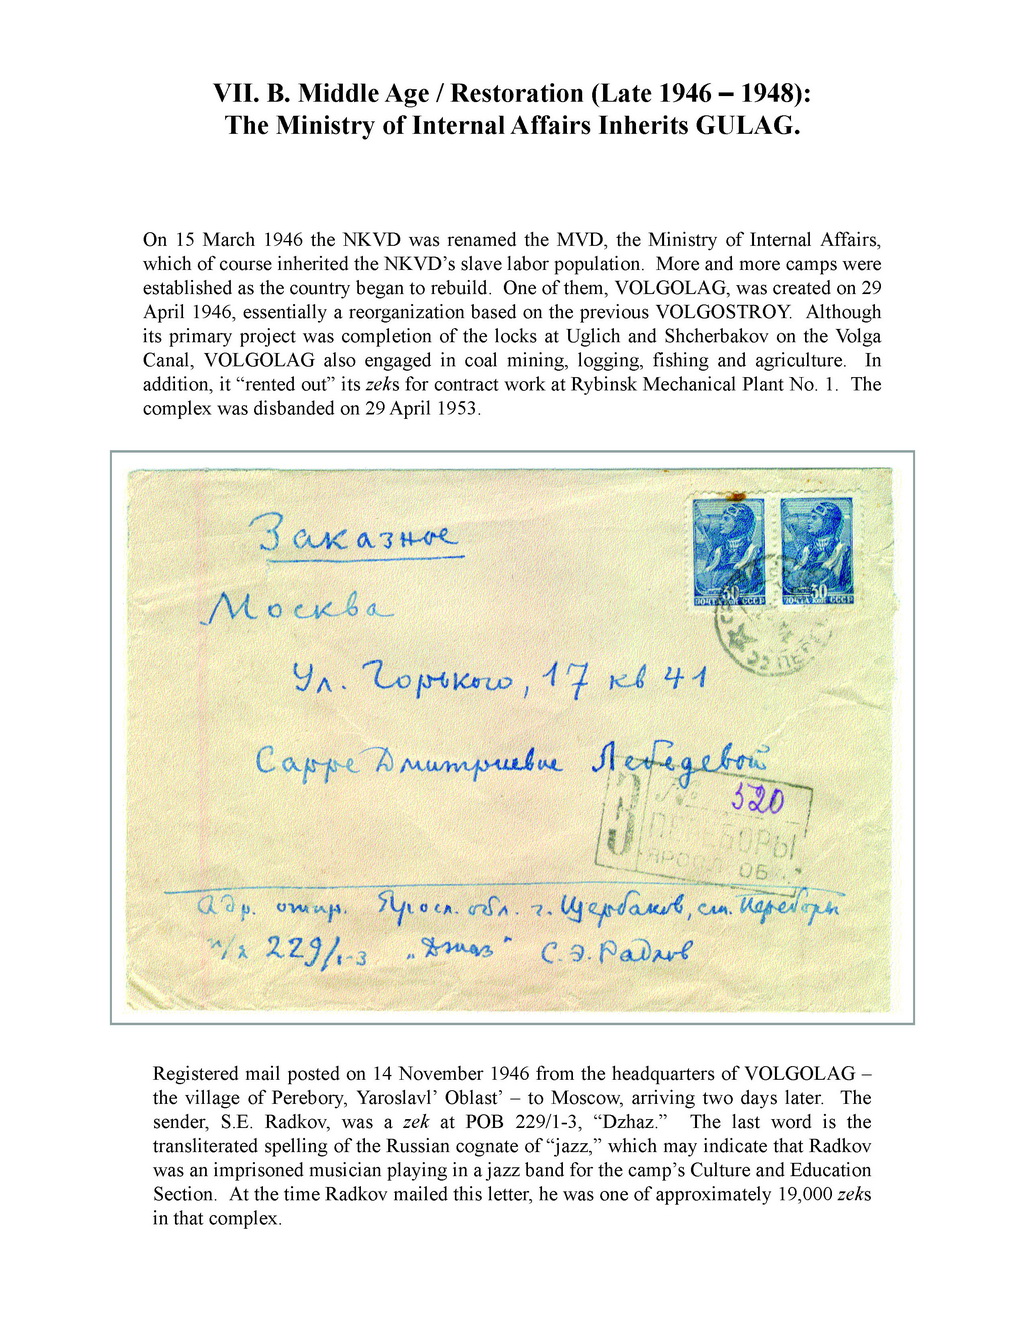 VII. B. Middle Age / Restoration (Late 1946 – 1948):
The Ministry of Internal Affairs Inherits GULAG.
On 15 March 1946 the NKVD was renamed the MVD, the Ministry of Internal Affairs,
which of course inherited the NKVD's slave labor population. More and more camps were
established as the country began to rebuild. One of them, VOLGOLAG, was created on 29
April 1946, essentially a reorganization based on the previous VOLGOSTROY. Although
its primary project was completion of the locks at Uglich and Shcherbakov on the Volga
Canal, VOLGOLAG also engaged in coal mining, logging, fishing and agriculture. In
addition, it “rented out” its zeks for contract work at Rybinsk Mechanical Plant No. 1. The
complex was disbanded on 29 April 1953.
Заказное
30 30
ПОЧТА КОП СССР ПОЧТА КОП СССР
Москва
Ул. Горького, 17 кв 41
Сарре Дмитриевне Лебедевой
З № 520
ПЕРЕБОРЫ
ЯРОСЛ. ОБ
Адр. отпр. Яросл. обл. г. Щербаков, ст. Переборы
п/я 229/1-3 „Джаз" С. Э. Радлов
Registered mail posted on 14 November 1946 from the headquarters of VOLGOLAG –
the village of Perebory, Yaroslavl’ Oblast’ – to Moscow, arriving two days later. The
sender, S.E. Radkov, was a zek at POB 229/1-3, “Dzhaz.” The last word is the
transliterated spelling of the Russian cognate of “jazz,” which may indicate that Radkov
was an imprisoned musician playing in a jazz band for the camp’s Culture and Education
Section. At the time Radkov mailed this letter, he was one of approximately 19,000 zeks
in that complex.